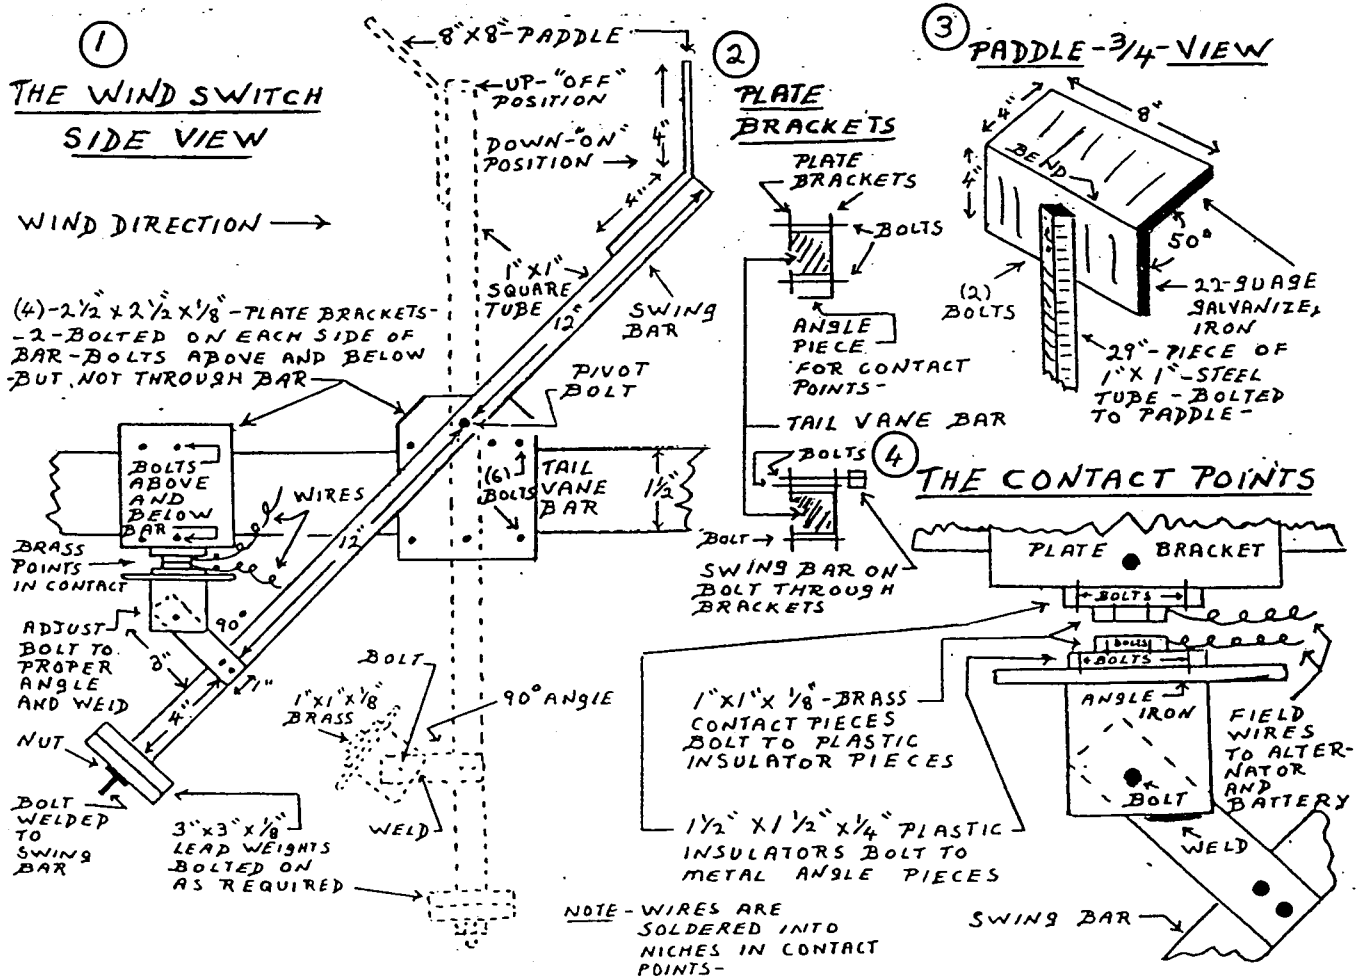 1
THE WIND SWITCH
SIDE VIEW
WIND DIRECTION
8"X8"-PADDLE
UP-"OFF"
POSITION
DOWN-"ON"
POSITION
4"
4"
1"X1"
SQUARE
TUBE
12"
SWING
BAR
(4)-2½"X2½"X⅛"-PLATE BRACKETS-
-2-BOLTED ON EACH SIDE OF
BAR-BOLTS ABOVE AND BELOW
-BUT NOT THROUGH BAR
PIVOT
BOLT
BOLTS
ABOVE
AND
BELOW
BAR
WIRES
(6)
BOLTS
TAIL
VANE
BAR
1½"
12"
BRASS
POINTS
IN CONTACT
90°
ADJUST
BOLT TO
PROPER
ANGLE
AND WELD
3"
1"
4"
NUT
BOLT
WELDED
TO
SWING
BAR
3"X3"X⅛"
LEAD WEIGHTS
BOLTED ON
AS REQUIRED
BOLT
1"X1"X⅛"
BRASS
90° ANGLE
WELD
2
PLATE
BRACKETS
PLATE
BRACKETS
BOLTS
ANGLE
PIECE
FOR CONTACT
POINTS-
TAIL VANE BAR
BOLTS
BOLT
SWING BAR ON
BOLT THROUGH
BRACKETS
3
PADDLE-3/4-VIEW
4"
8"
BEND
4"
50°
(2)
BOLTS
22-GUAGE
GALVANIZE,
IRON
29"-PIECE OF
1"X1"-STEEL
TUBE-BOLTED
TO PADDLE-
4
THE CONTACT POINTS
PLATE BRACKET
BOLTS
BOLTS
BOLTS
ANGLE
IRON
1"X1"X⅛"-BRASS
CONTACT PIECES
BOLT TO PLASTIC
INSULATOR PIECES
FIELD
WIRES
TO ALTER-
NATOR
AND
BATTERY
BOLT
WELD
1½"X1½"X¼" PLASTIC
INSULATORS BOLT TO
METAL ANGLE PIECES
SWING BAR
NOTE-WIRES ARE
SOLDERED INTO
NICHES IN CONTACT
POINTS-